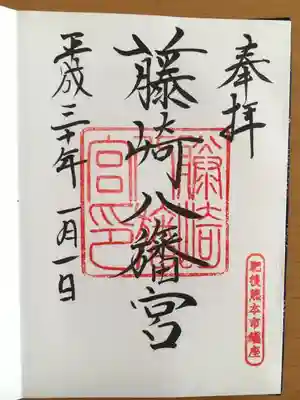 奉拝
藤崎八旛宮
平成三十年一月一日
藤崎八旛宮印
肥後熊本市鎮座